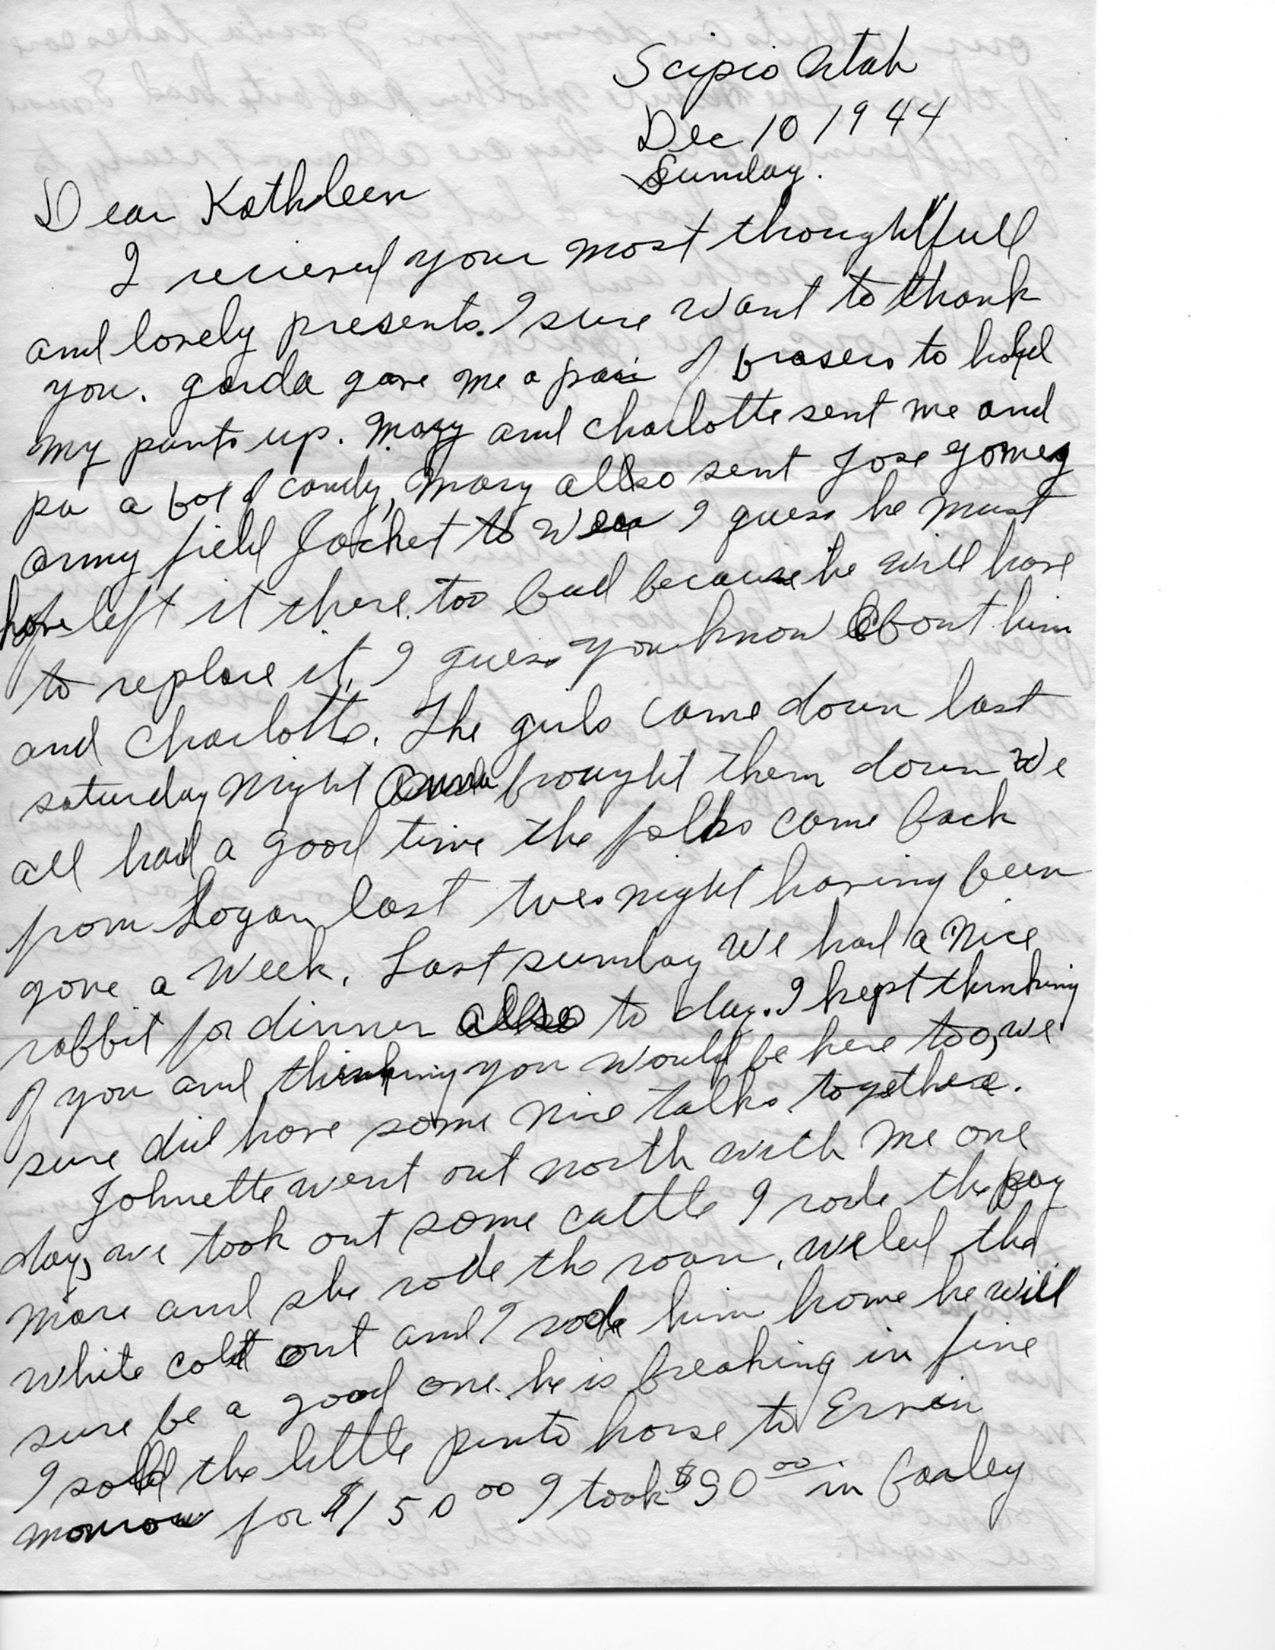 Scipio Utah
Dec 10 1944
Sunday.
Dear Kathleen
I recieved your most thoughtfull
and lovely presents. I sure want to thank
you. garda gave me a pair of brasers to hold
my pants up. Mary and Charlotte sent me and
pa a box of candy, Mary allso sent Jose Gomez
army field Jacket to wear I guess he must
have left it there. too bad because he will have
to replace it, I guess you know about him
and Charlotte. The girls came down last
saturday night brought them down we
all had a good time the folks came back
from Logan last tues night having been
gone a week. Last sunday we had a nice
rabbit for dinner allso to day. I kept thinking
of you and thinking you would be here too, we
sure did have some nice talks together.
Johnette went out north with me one
day, we took out some cattle I rode the bay
mare and she rode the roan, we led the
white colt out and I rode him home he will
sure be a good one. he is breaking in fine
I sold the little pinto horse to Ervin
monrow for $150.00 I took $90.00 in barley